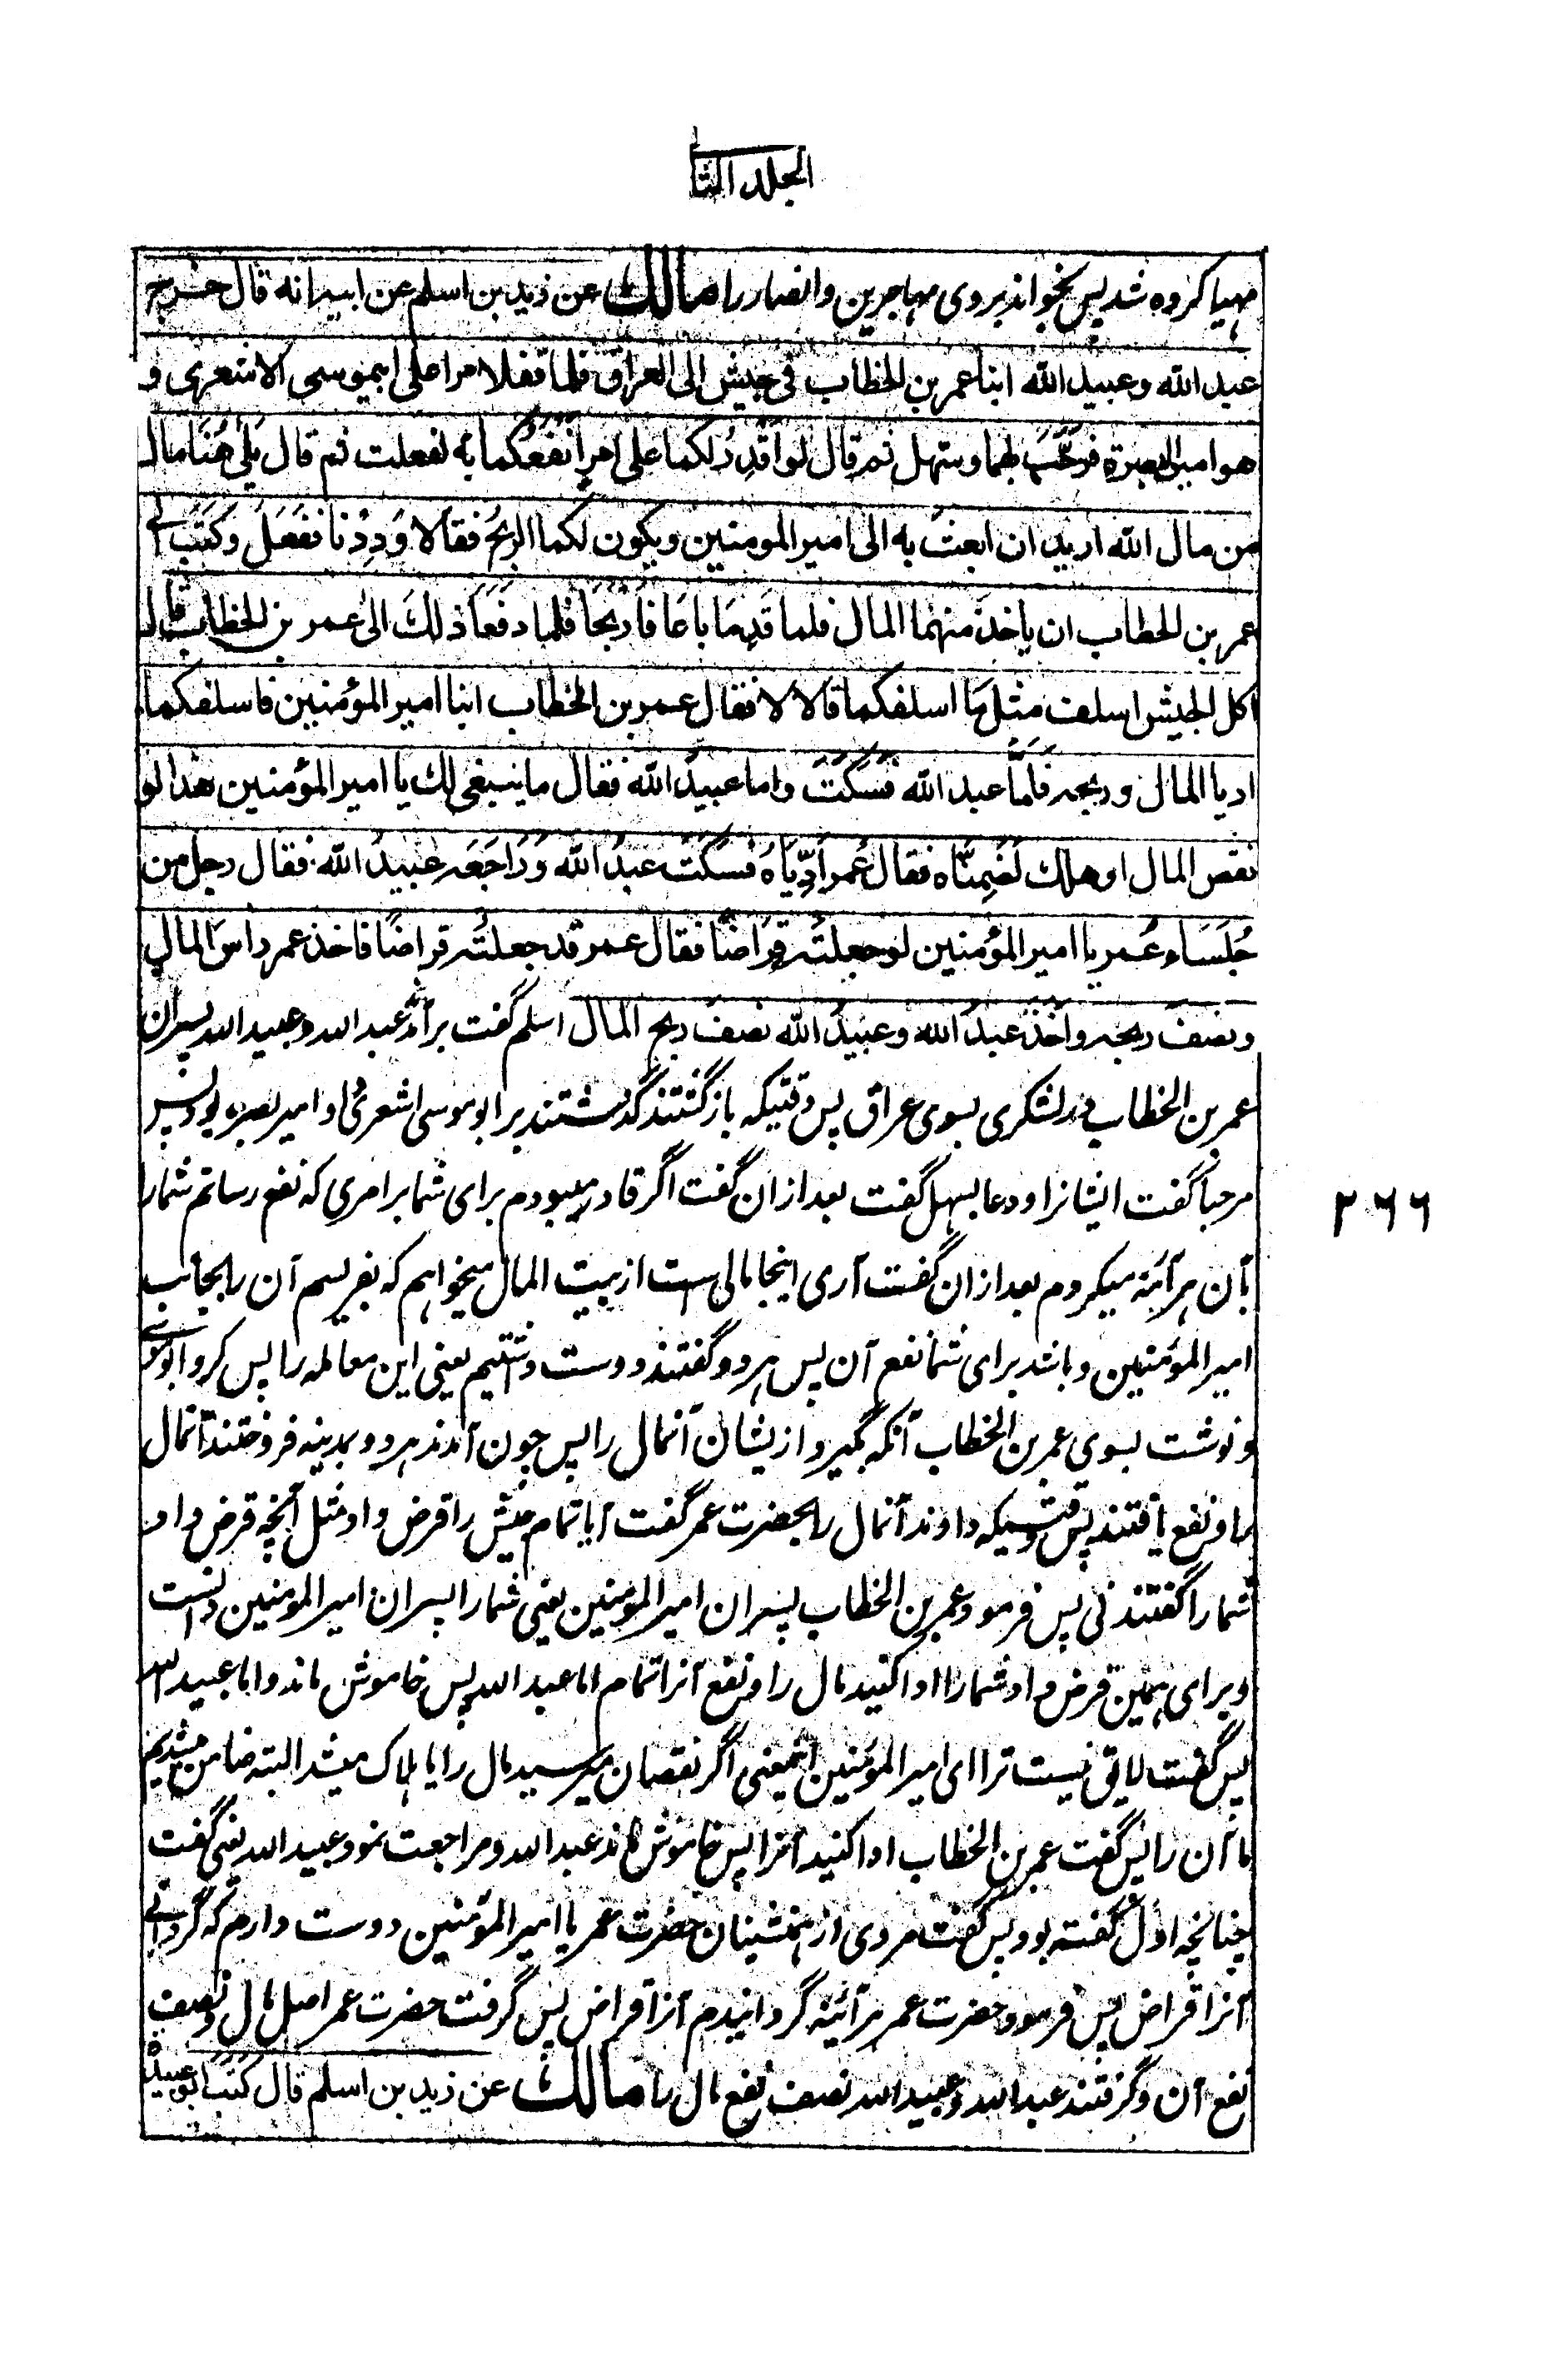 المجلد الثانی
مهیا کرده شد پس بخواند بروی مهاجرین و انصار را مالك عن زید بن اسلم عن ابیه انه قال خرج
عبد الله وعبید الله ابنا عمر بن الخطاب فی جیش الی العراق فلما قفلا مرا علی ابیموسی الاشعری و
هو امیر البصرة فرحَّبَ بهما وسَهَّل ثم قال لو اَقْدِرُ لکما علی امرٍ اَنْفَعُکُما به لفعلت ثم قال بَلی هٰهُنَا مال
من مال الله ارید ان ابعثَ به الی امیر المومنین ویکون لکما الربحُ فقالا وَدِدْنا ففَعَلَ وکَتَبَ الی
عمر بن الخطاب ان یاخذَ منهما المال فلما قَدِمَا باعَا فاَرْبَحَا فلما دفَعَا ذلِكَ الیٰ عمر بن الخطاب قال
اکل الجیش اسلف مثل ما اسلفکما قالا لا فقال عمر بن الخطاب ابنا امیر المؤمنین فاسلفکما
ادیا المال وربحه فَاَمَّا عبد الله فسَکَتَ واما عبیدُ الله فقال ما ینبغی لك یا امیر المؤمنین هذا لو
نقص المال او هلك لَضَمِنَّاه فقال عُمر اَدِّیَاهُ فسکَتَ عبدُ الله وَرَاجَعَه عبیدُ الله فقال رجل من
جُلَسَاءِ عُمر یا امیر المؤمنین لو جعلتَه قِرَاضًا فقال عمر قد جعلتُه قراضًا فاخذ عمر راسَ المال
ونصفَ ربحه واخَذَ عبدُ الله وعبیدُ الله نصفَ ربح المال اسلم گفت برآمد عبد الله وعبید الله پسران
عمر بن الخطاب در لشکری بسوی عراق پس وقتیکه بازگشتند گذشتند بر ابوموسی اشعری و او امیر بصره بود پس
مرحبا گفت ایشانرا و دعا بسهل گفت بعد ازان گفت اگر قادر میبودم برای شما بر امری که نفع رسانم شمارا
بآن هرآئنه میکردم بعد ازان گفت آری اینجا مالی است از بیت المال میخواهم که بفریسم آن را بجانب
امیر المؤمنین و باشد برای شما نفع آن پس هردو گفتند دوست داشتیم یعنی این معامله را پس کرد ابوموسی
و نوشت بسوی عمر بن الخطاب آنکه بگیرد ازیشان آنمال را پس چون آمدند هردو بمدینه فروختند آنمال
را و نفع یافتند پس وقتیکه دادند آنمال را بحضرت عمر گفت آیا تمام جیش را قرض داد مثل آنچه قرض داد
شمارا گفتند نی پس فرمود عمر بن الخطاب پسران امیر المؤمنین یعنی شمارا پسران امیر المومنین دانست
و برای همین قرض داد شمارا ادا کنید مال را و نفع آنرا تمام اما عبد الله پس خاموش ماند و اما عبید الله
پس گفت لایق نیست ترا ای امیر المؤمنین اینمعنی اگر نقصان میرسید مال را یا هلاک میشد البته ضامن میشدیم
ما آن را پس گفت عمر بن الخطاب ادا کنید آنرا پس خاموش ماند عبد الله و مراجعت نمود عبید الله یعنی گفت
چنانچه اول گفته بود پس گفت مردی از همنشینان حضرت عمر یا امیر المؤمنین دوست دارم که گردانی
آنرا قراض پس فرمود حضرت عمر هرآئینه گردانیدم آنرا قراض پس گرفت حضرت عمر اصل مال و نصف
نفع آن و گرفتند عبد الله و عبید الله نصف نفع مال را مالك عن زید بن اسلم قال کَتَبَ ابو عبیدة
۲۶۶